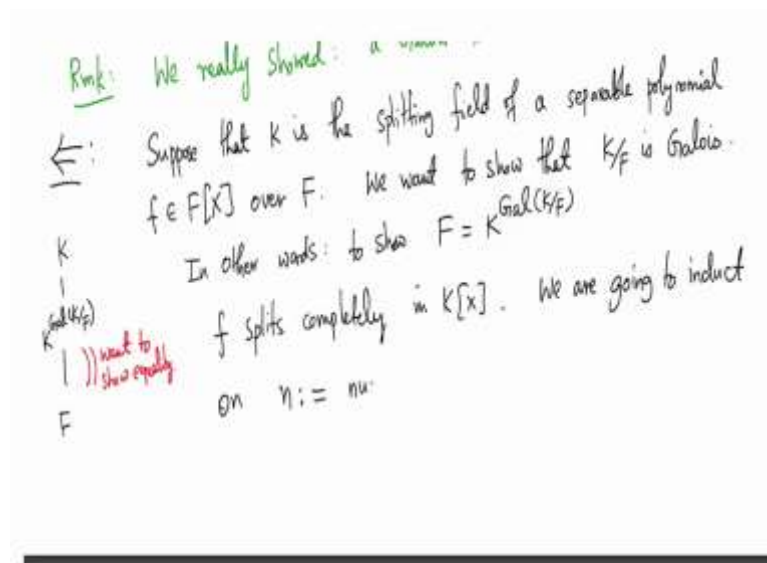 Rmk: We really showed: a
⇐: Suppose that K is the splitting field of a separable polynomial
f ∈ F[X] over F. We want to show that K/F is Galois.
In other words: to show F = K^Gal(K/F)
f splits completely in K[x]. We are going to induct
on n := nu
K
|
K^Gal(K/F)
| )) want to
show equality
F